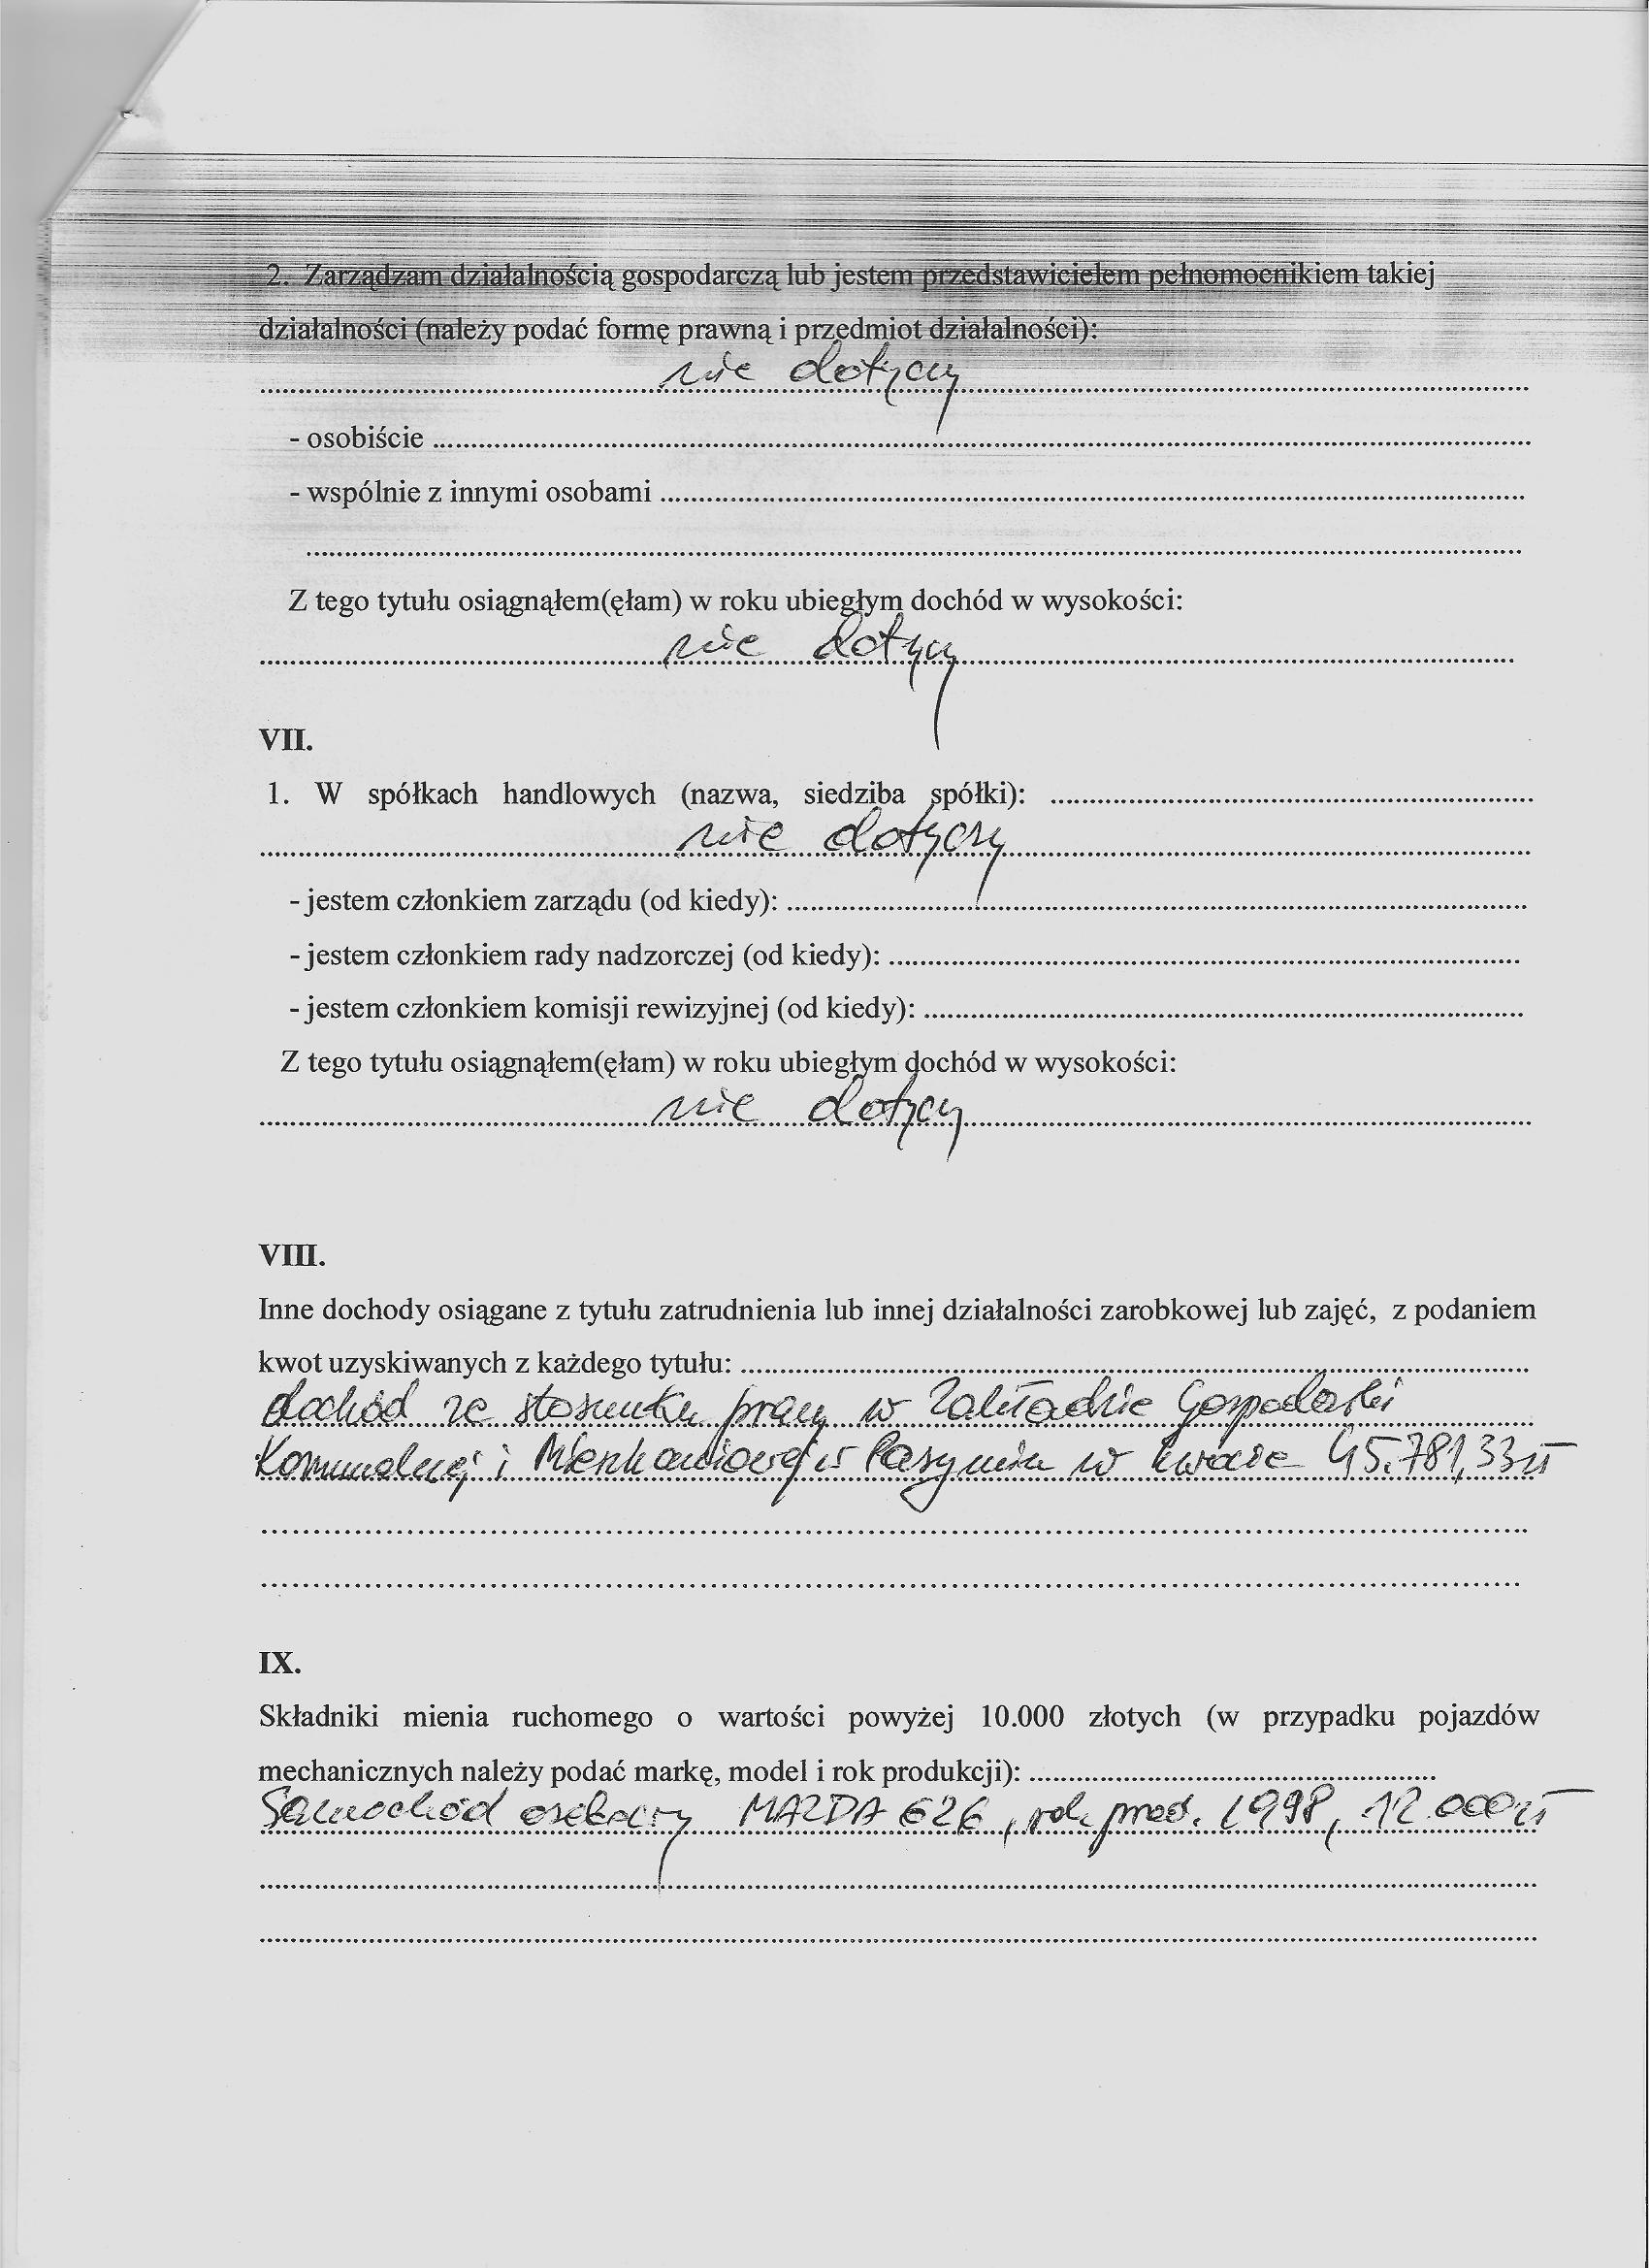 2. Zarządzam działalnością gospodarczą lub jestem przedstawicielem pełnomocnikiem takiej
działalności (należy podać formę prawną i przedmiot działalności):
nie dotyczy
- osobiście
- wspólnie z innymi osobami
Z tego tytułu osiągnąłem(ęłam) w roku ubiegłym dochód w wysokości:
nie dotyczy
VII.
1. W spółkach handlowych (nazwa, siedziba spółki):
nie dotyczy
- jestem członkiem zarządu (od kiedy):
- jestem członkiem rady nadzorczej (od kiedy):
- jestem członkiem komisji rewizyjnej (od kiedy):
Z tego tytułu osiągnąłem(ęłam) w roku ubiegłym dochód w wysokości:
nie dotyczy
VIII.
Inne dochody osiągane z tytułu zatrudnienia lub innej działalności zarobkowej lub zajęć, z podaniem
kwot uzyskiwanych z każdego tytułu:
dochód ze stosunku pracy w Zakładzie Gospodarki
Komunalnej i Mieszkaniowej w Pasymiu w kwocie 45.781,33 zł
IX.
Składniki mienia ruchomego o wartości powyżej 10.000 złotych (w przypadku pojazdów
mechanicznych należy podać markę, model i rok produkcji):
Samochód osobowy MAZDA 626, rok prod. 1998, 12.000 zł